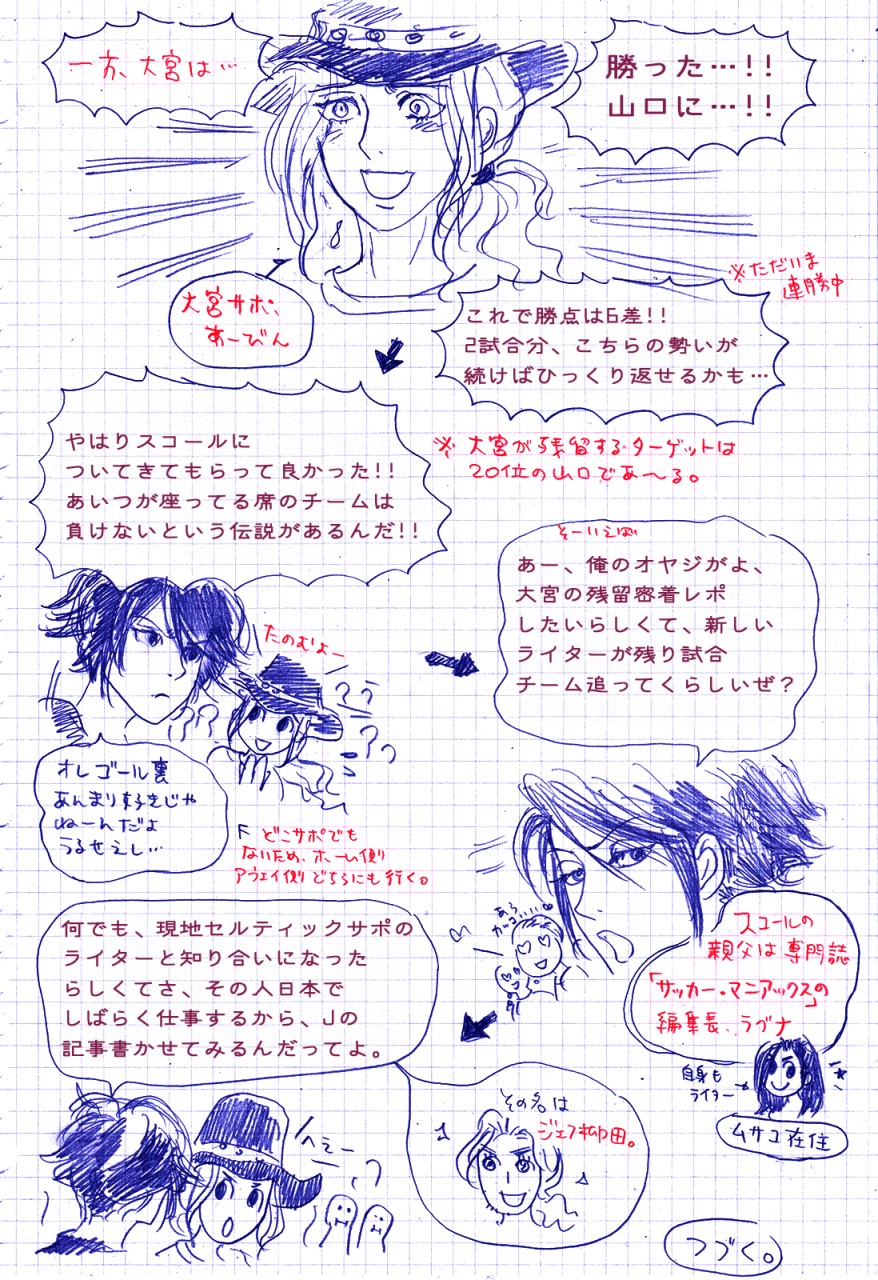 勝った…!!
山口に…!!
一方、大宮は…
大宮サポ、
あーびん
※ただいま
連勝中
これで勝点は6差!!
2試合分、こちらの勢いが
続けばひっくり返せるかも…
※ 大宮が残留するターゲットは
20位の山口であ〜る。
やはりスコールに
ついてきてもらって良かった!!
あいつが座ってる席のチームは
負けないという伝説があるんだ!!
たのむよー
??
??
??
オレゴール裏
あんまり好きじゃ
ねーんだよ
うるせえし…
どこサポでも
ないため、ホーム側
アウェイ側どちらにも行く。
そーいえば
あー、俺のオヤジがよ、
大宮の残留密着レポ
したいらしくて、新しい
ライターが残り試合
チーム追ってくらしいぜ?
あら
かっこいい
スコールの
親父は専門誌
「サッカー・マニアックスの」
編集長、ラグナ
自身も
ライター
ムサコ在住
何でも、現地セルティックサポの
ライターと知り合いになった
らしくてさ、その人日本で
しばらく仕事するから、Jの
記事書かせてみるんだってよ。
へえー
その名は
ジェフ柳田。
つづく。